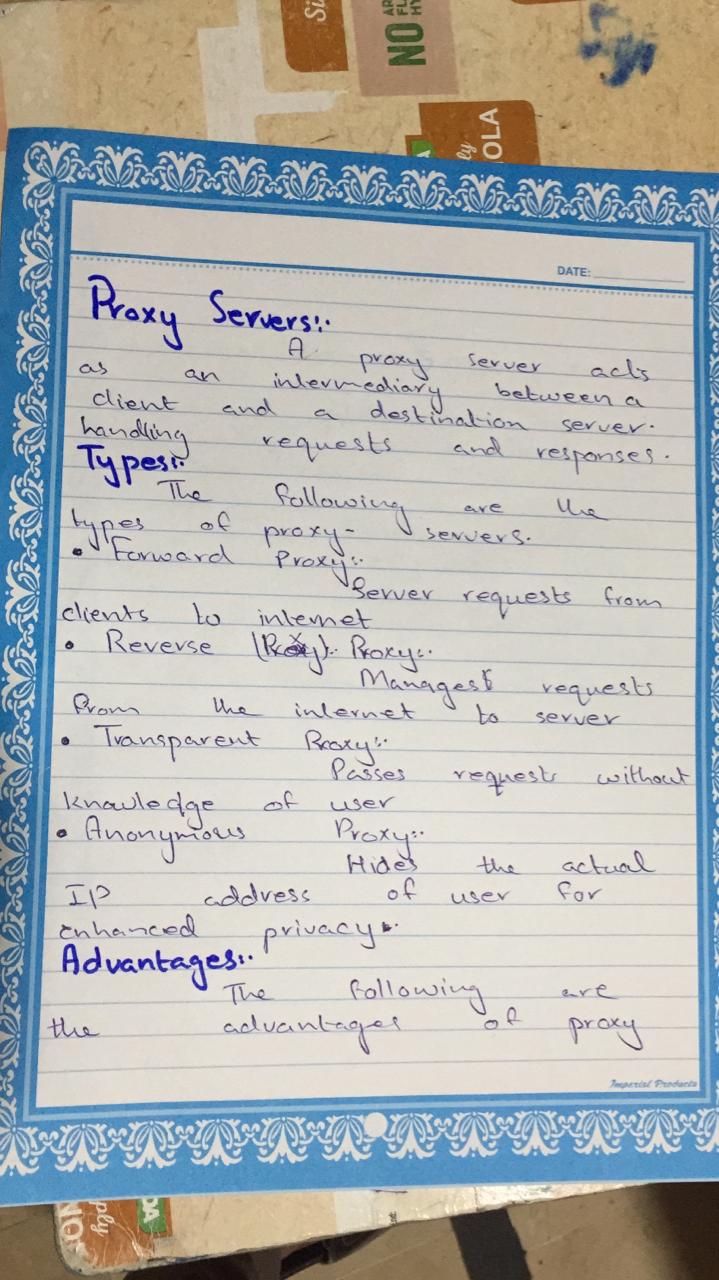 NO
OLA
DATE:
Proxy Servers:-
A proxy server acts
as an intermediary between a
client and a destination server.
handling requests and responses.
Types:-
The following are the
types of proxy- servers.
• Forward Proxy:-
Server requests from
clients to internet
• Reverse (Proxy). Proxy:-
Manages requests
from the internet to server
• Transparent Proxy:-
Passes requests without
knowledge of user
• Anonymous Proxy:-
Hides the actual
IP address of user for
enhanced privacy.
Advantages:-
The following are
the advantages of proxy
Imperial Products